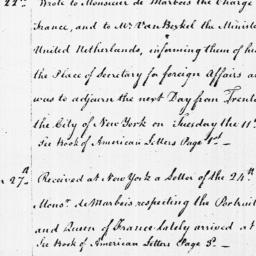 22d Wrote to Monsieur de Marbois the Charge
France, and to Mr. Van Berkel the Ministe
United Netherlands, informing them of his
the Place of Secretary fo foreign Affairs a
was to adjourn the next Day from Trent
the City of New York on Tuesday the 11th
See Book of American Letters Page 1st.
27th Received at New York a Letter of the 24th
Monsr. de Marbois respecting the Portrait
and Queen of France lately arrived at
See Book of American Letters Page 3d.